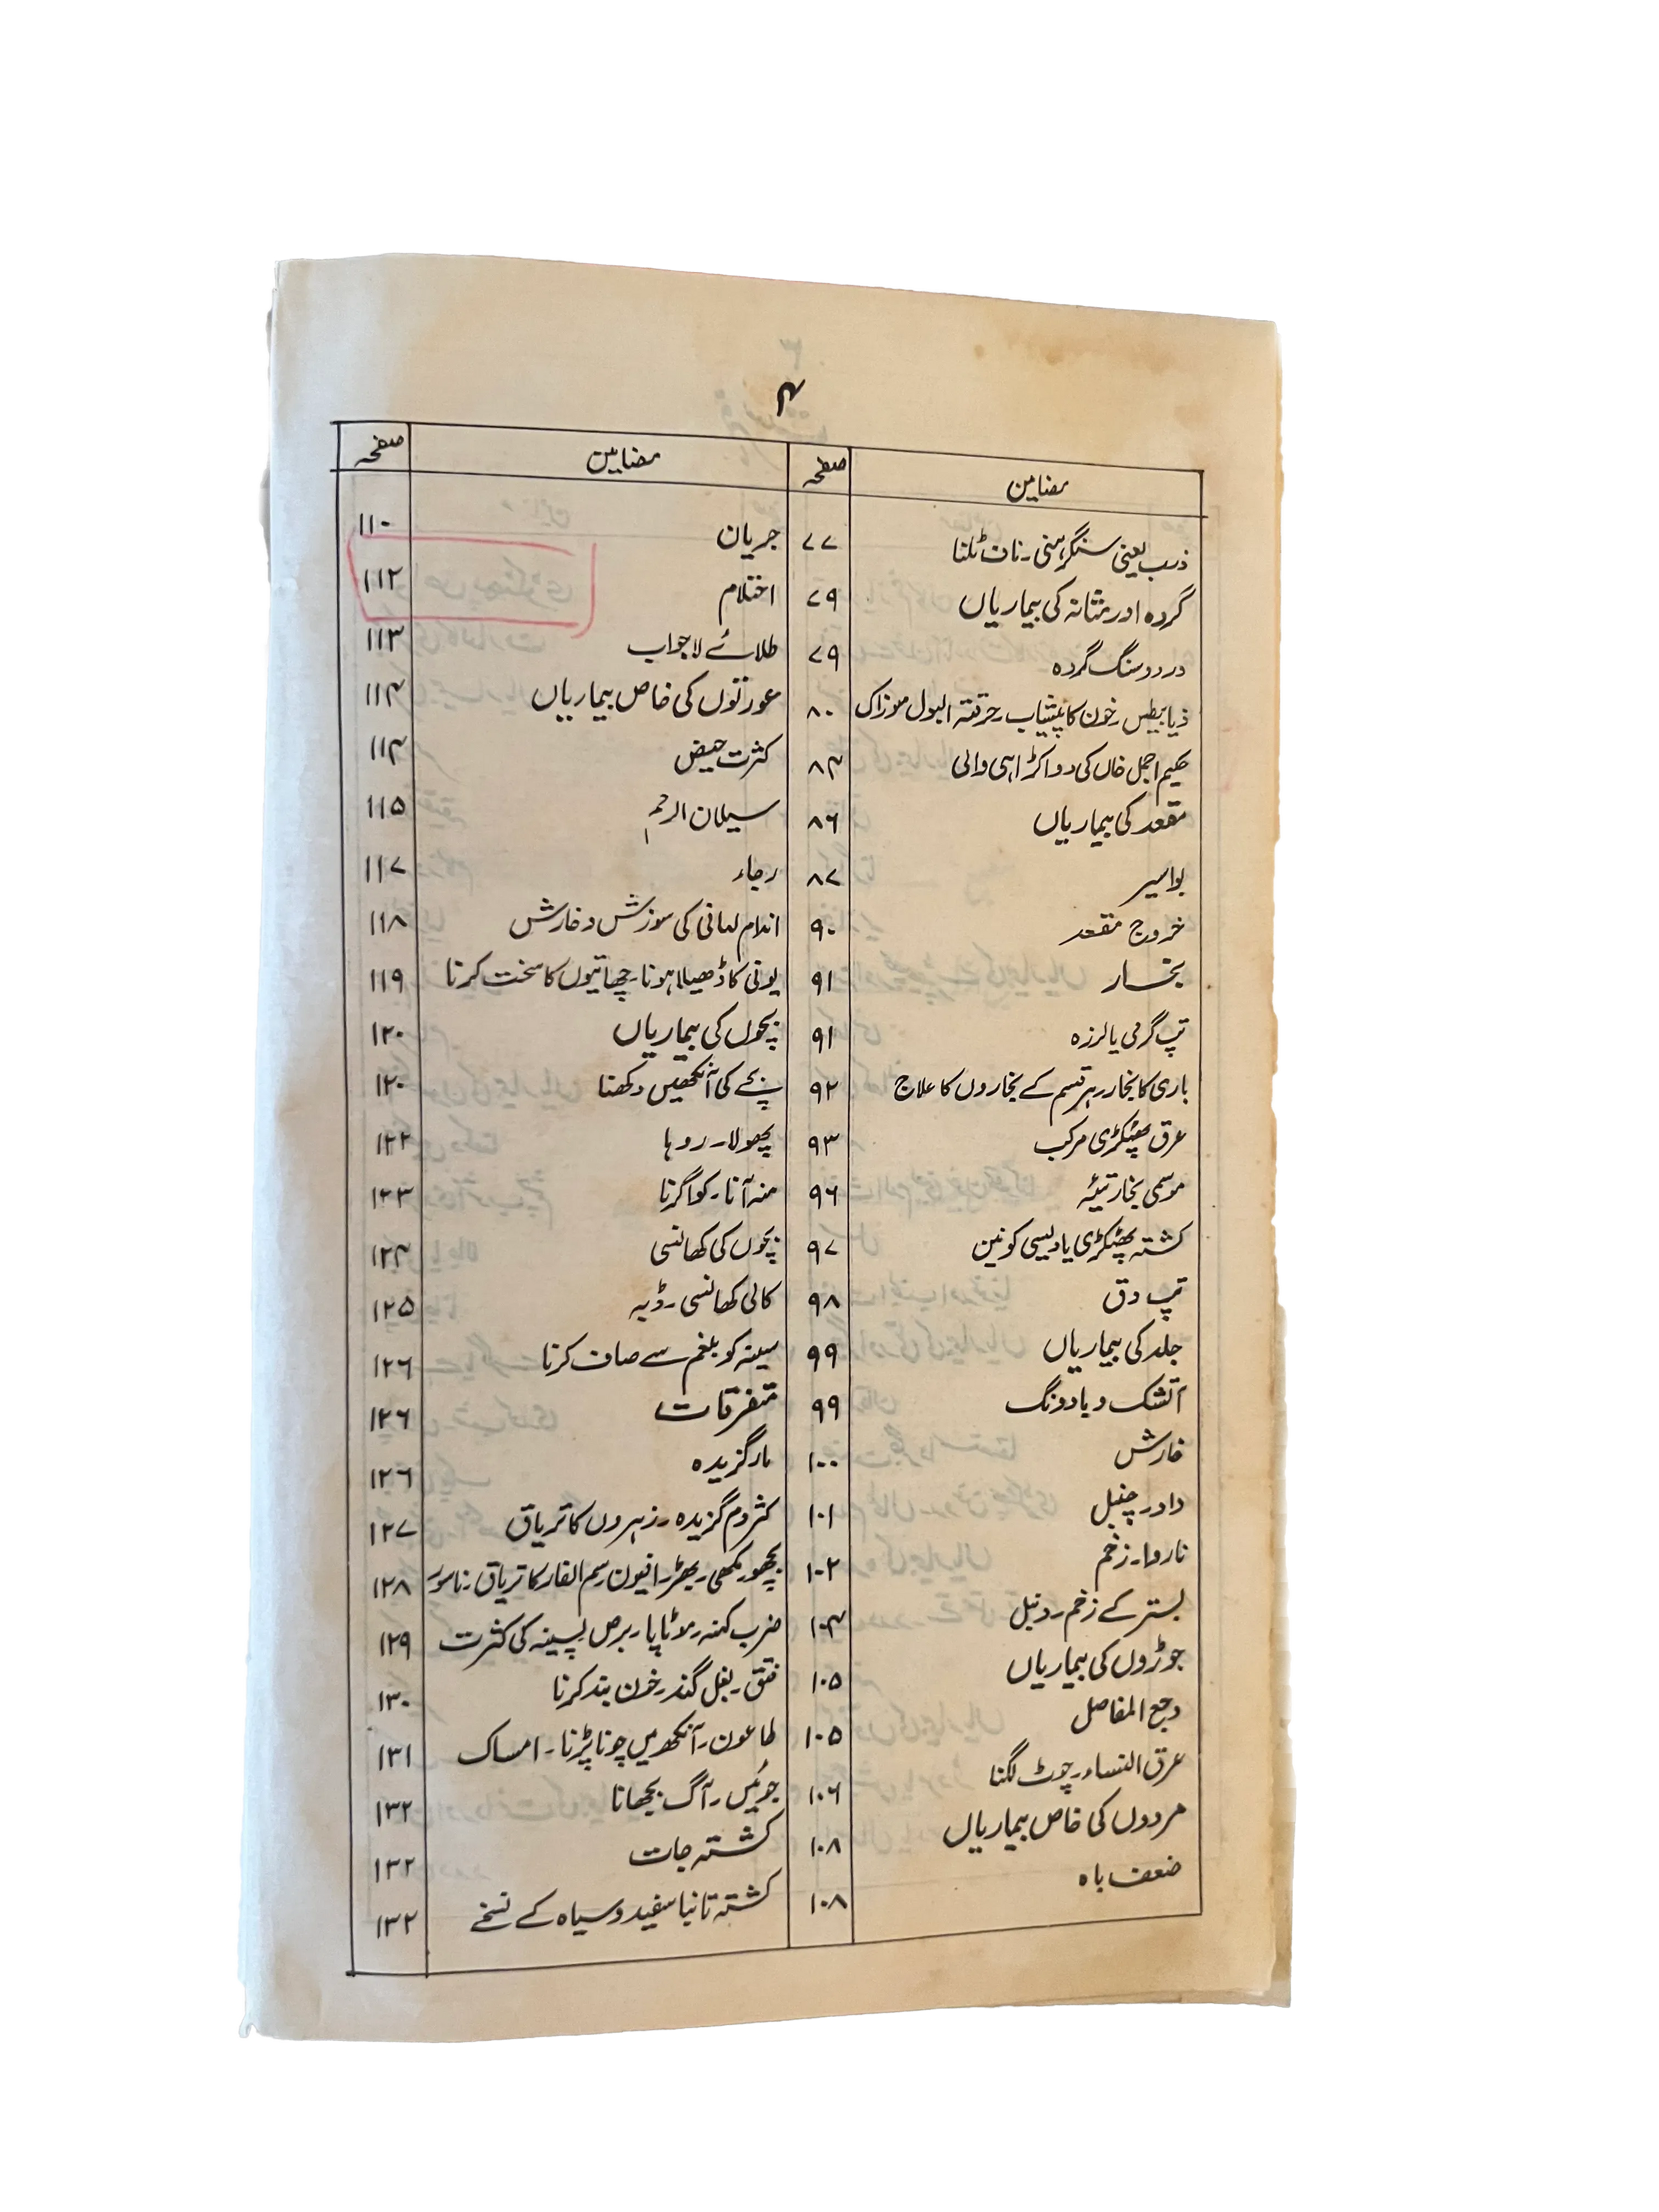 ۴
مضامین صفحہ
ذرب یعنی سنگرہنی۔ ناف ٹلنا ۷۷
گردہ اور مثانہ کی بیماریاں ۷۹
درد وسنگ گردہ ۷۹
ذیابیطس۔ خون کا پیشاب۔ حرقتہ البول سوزاک ۸۰
حکیم اجمل خاں کی دوا کڑاہی والی ۸۴
مقعد کی بیماریاں ۸۶
بواسیر ۸۷
خروج مقعد ۹۰
بخار ۹۱
تپ گرمی یا لرزہ ۹۱
باری کا بخار۔ ہر قسم کے بخاروں کا علاج ۹۲
عرق پھٹکڑی مرکب ۹۳
موسمی بخار تیئہ ۹۶
کشتہ پھٹکڑی یا دیسی کونین ۹۷
تپ دق ۹۸
جلد کی بیماریاں ۹۹
آتشک و بادونگ ۹۹
خارش ۱۰۰
داد۔ چنبل ۱۰۱
ناروا۔ زخم ۱۰۲
بستر کے زخم۔ دنبل ۱۰۴
جوڑوں کی بیماریاں ۱۰۵
وجع المفاصل ۱۰۵
عرق النساء۔ چوٹ لگنا ۱۰۶
مردوں کی خاص بیماریاں ۱۰۸
ضعف باہ ۱۰۸
مضامین صفحہ
جریان ۱۱۰
احتلام ۱۱۲
طلائے لاجواب ۱۱۳
عورتوں کی خاص بیماریاں ۱۱۴
کثرت حیض ۱۱۴
سیلان الرحم ۱۱۵
رجاء ۱۱۷
اندام نہانی کی سوزش و خارش ۱۱۸
یونی کا ڈھیلا ہونا۔ چھاتیوں کا سخت کرنا ۱۱۹
بچوں کی بیماریاں ۱۲۰
بچے کی آنکھیں دکھنا ۱۲۰
پھولا۔ روہا ۱۲۲
منہ آنا۔ کوا گرنا ۱۲۳
بچوں کی کھانسی ۱۲۴
کالی کھانسی۔ ڈبہ ۱۲۵
سینہ کو بلغم سے صاف کرنا ۱۲۶
متفرقات ۱۲۶
مارگزیدہ ۱۲۶
کژدم گزیدہ۔ زہروں کا تریاق ۱۲۷
بچھو۔ مکھی۔ بھڑ۔ افیون۔ سم الفار کا تریاق۔ ناسور ۱۲۸
ضرب کہنہ۔ موٹاپا۔ برص پسینہ کی کثرت ۱۲۹
فتق۔ بغل گند۔ خون بند کرنا ۱۳۰
طاعون۔ آنکھ میں چونا پڑنا۔ امساک ۱۳۱
جوئیں۔ آگ بجھانا ۱۳۲
کشتہ جات ۱۳۲
کشتہ تانبا سفید و سیاہ کے نسخے ۱۳۲